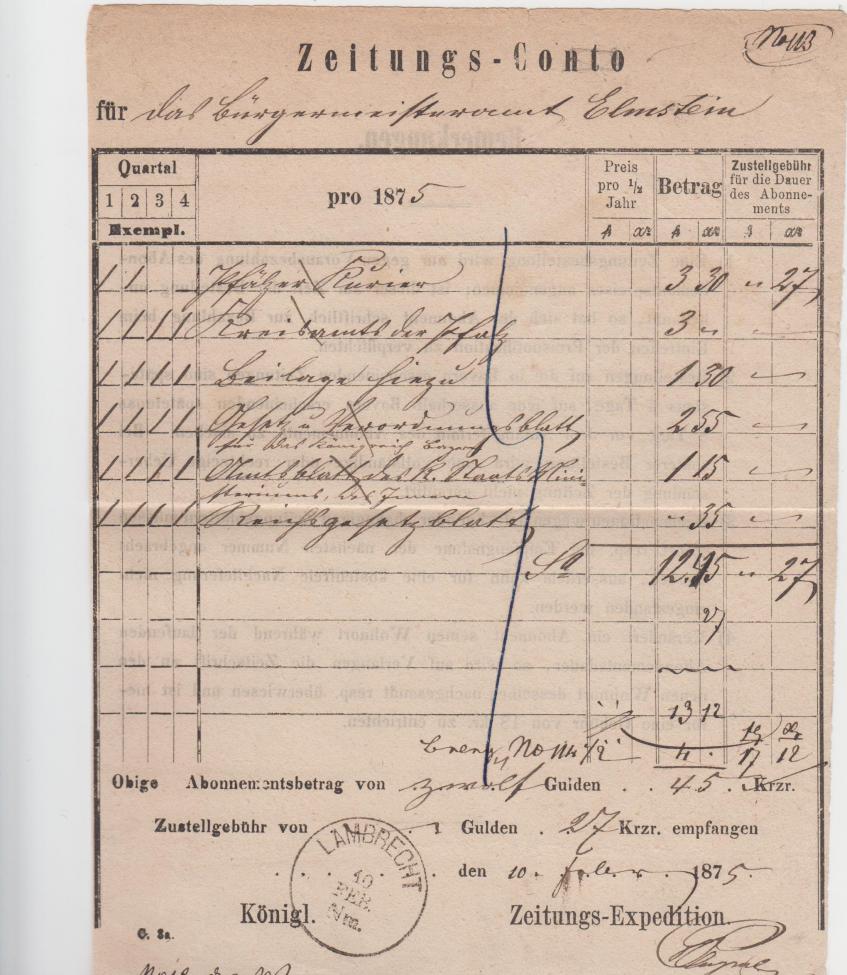 No 113
Zeitungs-Conto
für das Bürgermeisteramt Elmstein
Quartal
1 2 3 4
Exempl.
pro 1875
Preis pro 1/2 Jahr
Betrag
Zustellgebühr für die Dauer des Abonnements
1 1 Pfälzer Kurier 3 30 " 27
1 1 1 1 Kreisamts der Pfalz 3 "
1 1 1 1 Beilage hiezu 1 30
1 1 1 1 Gesetz u Verordnungsblatt 2 55
für das Königreich Bayern
1 1 1 1 Amtsblatt des K. Staats Mini
steriums, des
1 15
1 1 1 1 Reichsgesetzblatt " 35
Sa 12.45 " 27
27
13 12
4. 17 12
Obige Abonnementsbetrag von zwölf Gulden . . 45 . . Krzr.
Zustellgebühr von Gulden . 27 Krzr. empfangen
den 10. Feber 1875.
LAMBRECHT
10
FEB.
Nm.
Königl. Zeitungs-Expedition.